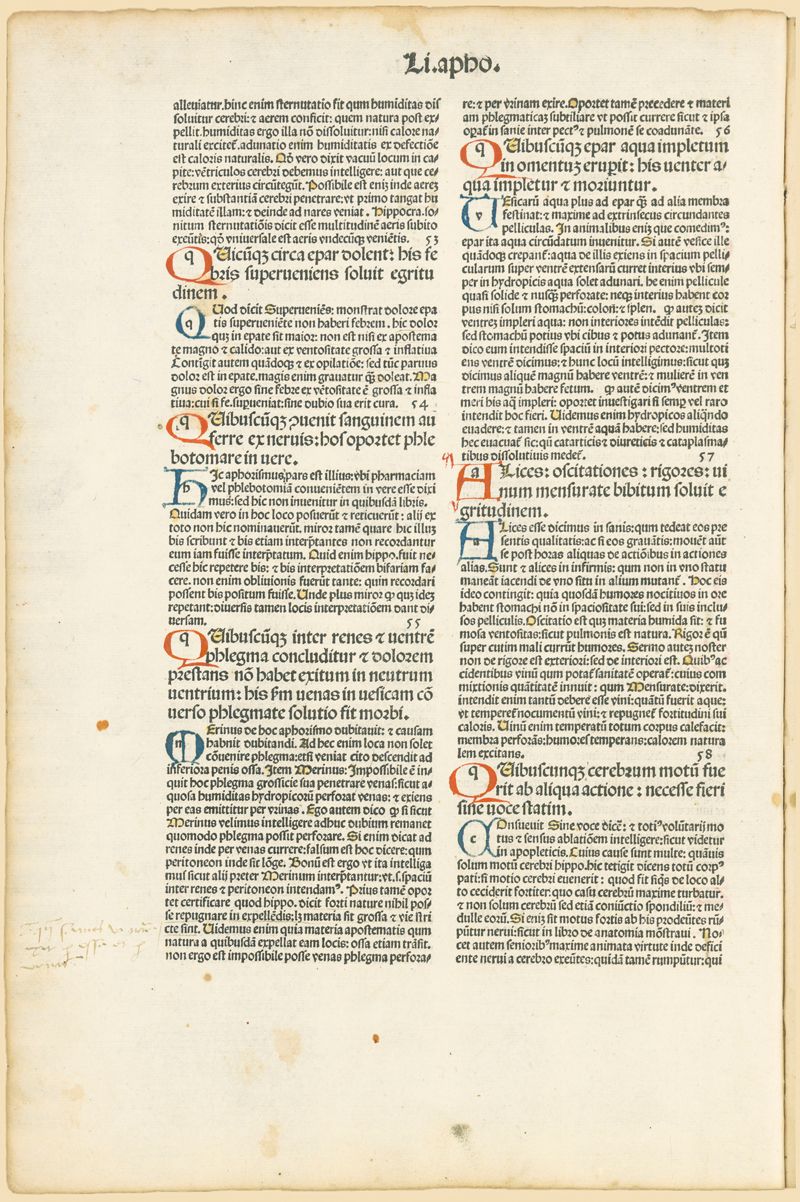 Li.apho.
alleuiatur.hinc enim sternutatio fit qum humiditas dis
soluitur cerebri:⁊ aerem conficit: quem natura post ex⸗
pellit.humiditas ergo illa nō dissoluitur:nisi calore na⸗
turali excitet̄.adunatio enim humiditatis ex defectiōe
est caloris naturalis. Qō vero dixit vacuū locum in ca⸗
pite:vētriculos cerebri debemus intelligere: aut que ce⸗
rebrum exterius circūtegūt. Possibile est eniz inde aerez
exire ⁊ substantiā cerebri penetrare:vt primo tangat hu
miditatē illam: ⁊ deinde ad nares veniat. Hippocra.so⸗
nitum sternutatiōis dicit esse multitudinē aeris subito
exeūtis:qō vniuersale est aeris vndecūqꝫ veniētis. 53
qUicūqꝫ circa epar dolent: his fe
bris superueniens soluit egritu
dinem.
QUod dicit Superueniēs: monstrat dolore epa
tis superueniēte non haberi febrem. hic dolor
quꝫ in epate sit maior: non est nisi ex apostema
te magno ⁊ calido:aut ex ventositate grossa ⁊ inflatiua
Contigit autem quādoqꝫ ⁊ ex opilatiōe: sed tūc paruus
dolor est in epate.magis enim grauatur qꝫ doleat. Ma
gnus dolor ergo sine febre ex vētositate ē grossa ⁊ infla
tiua:cui si fe.supueniat:sine dubio sua erit cura. 54
qUibuscūqꝫ ꝯuenit sanguinem au
ferre ex neruis:hos oportet phle
botomare in uere.
hIc aphorismus pars est illius:vbi pharmaciam
vel phlebotomiā conueniētem in vere esse dixi
mus:sed hic non inuenitur in quibusdā libris.
Quidam vero in hoc loco posuerūt ⁊ reticuerūt: alij ex
toto non hic nominauerūt. miror tamē quare hic illuꝫ
bis scribunt ⁊ bis etiam interp̄tantes non recordantur
eum iam fuisse interp̄tatum. Quid enim hippo.fuit ne⸗
cesse hic repetere bis: ⁊ bis interpretatiōem bifariam fa⸗
cere. non enim obliuionis fuerūt tante: quin recordari
possent bis positum fuisse. Unde plus miror ꝙ quꝫ ideꝫ
repetant:diuersis tamen locis interpretatiōem dant di⸗
uersam. 55
qUibuscūqꝫ inter renes ⁊ uentrē
phlegma concluditur ⁊ dolorem
prestans nō habet exitum in neutrum
uentrium: his ſm uenas in uesicam cō
uerso phlegmate solutio fit morbi.
mErinus de hoc aphorismo dubitauit: ⁊ causam
habuit dubitandi. Ad hec enim loca non solet
cōuenire phlegma:etsi veniat cito descendit ad
inferiora penis ossa. Item Merinus:Impossibile ē in⸗
quit hoc phlegma grossicie sua penetrare venas:sicut a⸗
quosa humiditas hydropicorū perforat venas: ⁊ exiens
per eas emittitur per vrinas. Ego autem dico ꝙ si sicut
Merinus velimus intelligere adhuc dubium remanet
quomodo phlegma possit perforare. Si enim dicat ad
renes inde per venas currere:falsum est hoc dicere: qum
peritoneon inde sit lōge. Bonū est ergo vt ita intelliga
mus sicut alij preter Merinum interp̄tantur:vt.s.spaciū
inter renes ⁊ peritoneon intendam⁹. Prius tamē opor
tet certificare quod hippo. dicit forti nature nihil pos⸗
se repugnare in expellēdis:lꝫ materia sit grossa ⁊ vie stri
cte sint. Uidemus enim quia materia apostematis qum
natura a quibusdā expellat eam locis: ossa etiam trāsit.
non ergo est impossibile posse venas phlegma perfora⸗
re: ⁊ per vrinam exire. Oportet tamē precedere ⁊ materi
am phlegmaticaꝫ subtiliare vt possit currere sicut ⁊ ipsa
oꝑat̄ in sanie inter pect⁹ ⁊ pulmonē se coadunāte. 56
qUibuscūqꝫ epar aqua impletum
in omentuꝫ erupit: his uenter a⸗
qua impletur ⁊ moriuntur.
vEsicarū aqua plus ad epar qꝫ ad alia membra
festinat: ⁊ maxime ad extrinsecus circundantes
pelliculas. In animalibus eniꝫ que comedim⁹:
epar ita aqua circūdatum inuenitur. Si autē vesice ille
quādoqꝫ crepant̄:aqua de illis exiens in spacium pelli⸗
cularum super ventrē extensarū curret interius vbi sem⸗
per in hydropicis aqua solet adunari. he enim pellicule
quasi solide ⁊ nusqꝫ perforate: neqꝫ interius habent cor
pus nisi solum stomachū:colon: ⁊ splen. ꝙ autez dicit
ventreꝫ impleri aqua: non interiores intēdit pelliculas:
sed stomachū potius vbi cibus ⁊ potus adunant̄. Item
dico eum intendisse spaciū in interiori pectore:multoti
ens ventrē dicimus: ⁊ hunc locū intelligimus:sicut quꝫ
dicimus aliquē magnū habere ventrē: ⁊ mulierē in ven
trem magnū habere fetum. ꝙ autē dicim⁹ ventrem et
meri his aq̄ impleri: oportet inuestigari si semp vel raro
intendit hoc fieri. Uidemus enim hydropicos aliqn̄do
euadere: ⁊ tamen in ventrē aquā habere:sed humiditas
hec euacuat̄ sic:qū catarticis ⁊ diureticis ⁊ cataplasma⸗
tibus dissolutiuis medet̄. 57
aLices: oscitationes: rigores: ui
num mensurate bibitum soluit e
gritudinem.
aLices esse dicimus in sanis:qum tedeat eos pre
sentis qualitatis:ac si eos grauātis: mouēt aūt
se post horas aliquas de actiōibus in actiones
alias. Sunt ⁊ alices in infirmis: qum non in vno statu
maneāt iacendi de vno situ in alium mutant̄. Hoc eis
ideo contingit: quia quosdā humores nocituios in ore
habent stomachi nō in spaciositate sui:sed in suis inclu⸗
sos pelliculis. Oscitatio est quꝫ materia humida sit: ⁊ fu
mosa ventositas:sicut pulmonis est natura. Rigor ē qū
super cutim mali currūt humores. Sermo autez noster
non de rigore est exteriori:sed de interiori est. Quib⁹ ac
cidentibus vinū qum potat̄ sanitatē operat̄:cuius com
mixtionis quātitatē innuit: qum Mensurate:dixerit.
intendit enim tantū debere esse vini:quātū fuerit aque:
vt temperet̄ nocumētū vini: ⁊ repugnet̄ fortitudini sui
caloris. Uinū enim temperatū totum corpus calefacit:
membra perforās:humores temperans:calorem natura
lem excitans. 58
qUibuscunqꝫ cerebrum motū fue
rit ab aliqua actione: necesse fieri
sine uoce statim.
cOnsueuit Sine voce dicē: ⁊ toti⁹ volūtarij mo
tus ⁊ sensus ablatiōem intelligere:sicut videtur
in apopleticis. Cuius cause sunt multe: quāuis
solum motū cerebri hippo.hic tetigit dicens totū corp⁹
pati:si motio cerebri euenerit: quod fit siq̄s de loco al⸗
to ceciderit fortiter:quo casu cerebrū maxime turbatur.
⁊ non solum cerebrū sed etiā coniūctio spondiliū: ⁊ me⸗
dulle eorū. Si eniꝫ sit motus fortis ab his prodeūtes rū⸗
pūtur nerui:sicut in libro de anatomia mōstraui. No⸗
cet autem seniorib⁹ maxime animata virtute inde defici
ente nerui a cerebro exeūtes:quidā tamē rumpūtur:qui